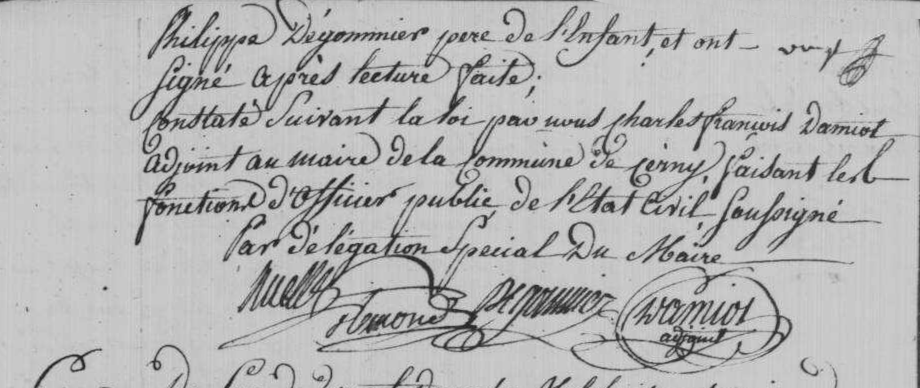 Philippe Dégommier pere de l'Enfant, et ont
signé après lecture faite;
Constaté Suivant la loi par nous charles françois Damiot
adjoint au maire de la Commune de Cerny, faisant les
fonctions d'officier public de l'Etat Civil, Soussigné
Par délégation Special Du Maire
Ruelle
Hemond Degommier Damiot
adjoint